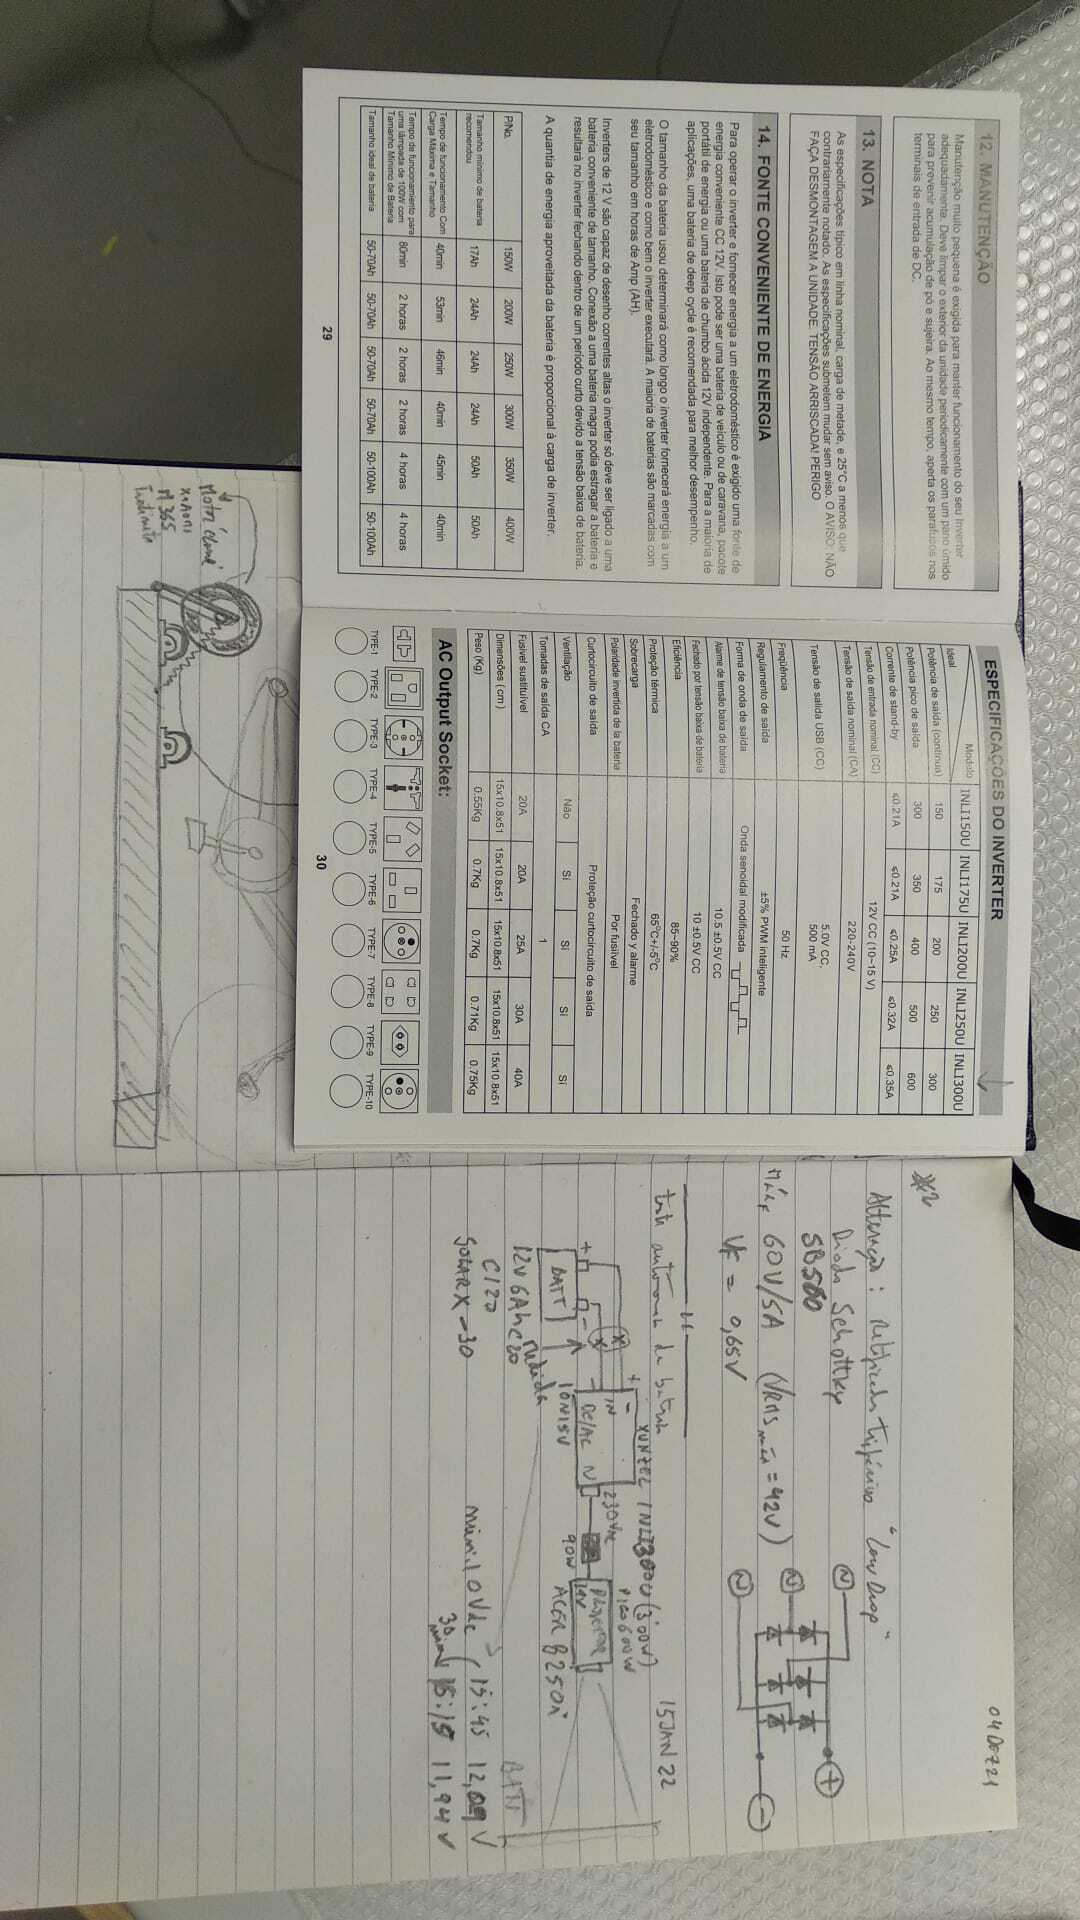 12. MANUTENÇÃO
Manutenção muito pequena é exigida para manter funcionamento do seu Inverter
adequadamente. Deve limpar o exterior da unidade periodicamente com um pano úmido
para prevenir acumulação de pó e sujeira. Ao mesmo tempo, aperta os parafusos nos
terminais de entrada de DC.
13. NOTA
As especificações típico em linha nominal, carga de metade, e 25°C a menos que
contrariamente notado. As especificações submetem mudar sem aviso. O AVISO: NÃO
FAÇA DESMONTAGEM A UNIDADE. TENSÃO ARRISCADA! PERIGO
14. FONTE CONVENIENTE DE ENERGIA
Para operar o inverter e fornecer energia a um eletrodoméstico é exigido uma fonte de
energia conveniente CC 12V. Isto pode ser uma bateria de veículo ou de caravana, pacote
portátil de energia ou uma bateria de chumbo ácida 12V independente. Para a maioria de
aplicações, uma bateria de deep cycle é recomendada para melhor desempenho.
O tamanho da bateria usou determinará como longo o inverter fornecerá energia a um
eletrodoméstico e como bem o inverter executará. A maioria de baterias são marcadas com
seu tamanho em horas de Amp (AH).
Inverters de 12 V são capaz de desenho correntes altas o inverter só deve ser ligado a uma
bateria conveniente de tamanho. Conexão a uma bateria magra podia estragar a bateria e
resultará no inverter fechando dentro de um período curto devido a tensão baixa de bateria.
A quantia de energia aproveitada da bateria é proporcional à carga de inverter.
P/No. 150W 200W 250W 300W 350W 400W
Tamanho mínimo de bateria
recomendou 17Ah 24Ah 24Ah 24Ah 50Ah 50Ah
Tempo de funcionamento Com
Carga Máxima e Tamanho 40min 53min 46min 40min 45min 40min
Tempo de funcionamiento para
uma lâmpada de 100W com
Tamanho Mínimo de Bateria 80min 2 horas 2 horas 2 horas 4 horas 4 horas
Tamanho ideal de bateria 50-70Ah 50-70Ah 50-70Ah 50-70Ah 50-100Ah 50-100Ah
29
ESPECIFICAÇÕES DO INVERTER
Ideal Modulo INLI150U INLI175U INLI200U INLI250U INLI300U
Potência de saída (contínua) 150 175 200 250 300
Potência pico de saída 300 350 400 500 600
Corrente de stand-by ≤0.21A ≤0.21A ≤0.25A ≤0.32A ≤0.35A
Tensão de entrada nominal (CC) 12V CC (10~15 V)
Tensão de saída nominal (CA) 220-240V
Tensão de salida USB (CC) 5.0V CC,
500 mA
Freqüência 50 Hz
Regulamento de saída ±5% PWM inteligente
Forma de onda de saída Onda senoidal modificada
Alarme de tensão baixa de bateria 10.5 ±0.5V CC
Fechado por tensão baixa de bateria 10 ±0.5V CC
Eficiência 85~90%
Proteção térmica 65°C+/-5°C
Sobrecarga Fechado y alarme
Polaridade invertida de la bateria Por fusiível
Curtocircuito de saída Proteção curtocircuito de saída
Ventilação Não Sí Sí Sí Sí
Tomadas de saída CA 1
Fusível sustituível 20A 20A 25A 30A 40A
Dimensões (cm) 15x10.8x51 15x10.8x51 15x10.8x51 15x10.8x51 15x10.8x51
Peso (Kg) 0.55Kg 0.7Kg 0.7Kg 0.71Kg 0.75Kg
AC Output Socket:
TYPE-1 TYPE-2 TYPE-3 TYPE-4 TYPE-5 TYPE-6 TYPE-7 TYPE-8 TYPE-9 TYPE-10
30
XIAOMI
M365
04 DEZ 21
*2
Alteração: Trifásico "Low Drop"
Diodo Schottky
SB560
Máx 60V/5A (VRMS máx = 42V)
VF = 0,65V
15 JAN 22
de bateria
INLI300U (300W)
PICO 600W
+ -
IN
230Vac
+ - BATT
DC/AC
10A 15V
90W
19V
ACER
12V 6Ah C20
C120
SOLARX-30
BATT
10Vdc
15:45 12,09 V
30 min 15:15 11,94 V